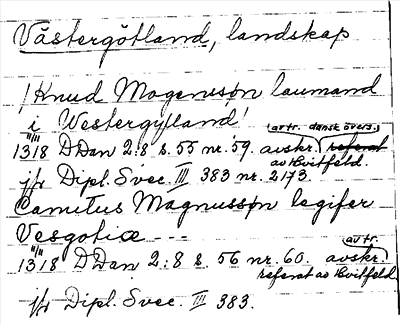 Västergötland, landskap
/Knud Magensson laumand
i Westergylland/
avtr. dansk övers.
1318 11/11 DDan 2:8 s. 55 nr. 59. avskr. referat
av Hvitfeld.
jfr Dipl. Svec. III 383 nr. 2173.
Canutus Magnusson legifer
Vesgotiæ - - -
avtr.
1318 11/11 DDan 2:8 s. 56 nr. 60. avskr.
referat av Hvitfeld
jfr Dipl. Svec. III 383.